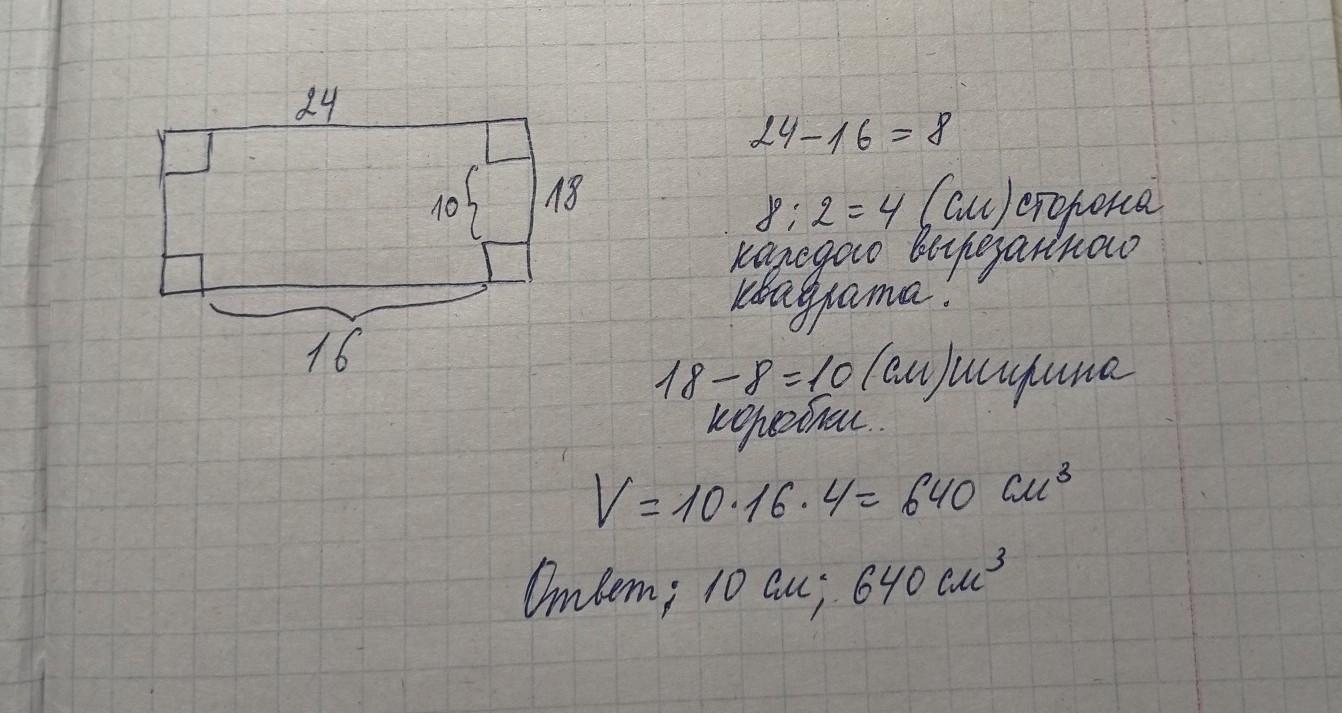 24
10
18
16
24-16=8
8:2=4 (см) сторона
каждого вырезанного
квадрата.
18-8=10 (см) ширина
коробки..
V=10·16·4=640 см³
Ответ; 10 см; 640 см³